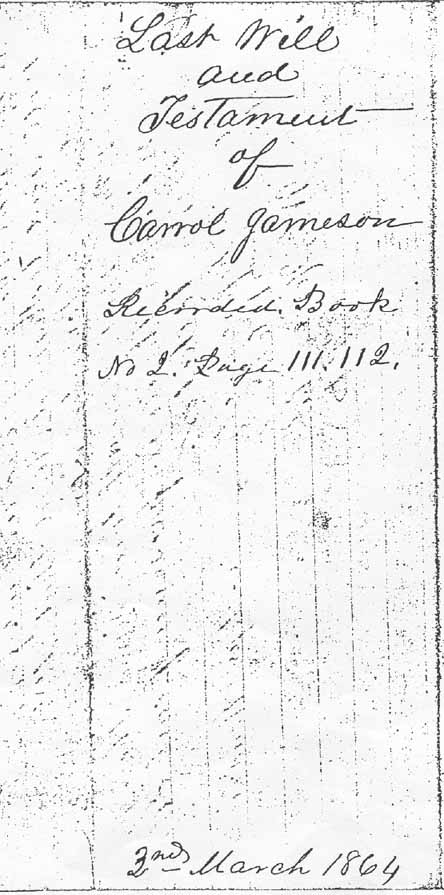 Last Will
and
Testament
of
Carrol Jameson
Recorded. Book
No 2. Page 111. 112.
2nd March 1864